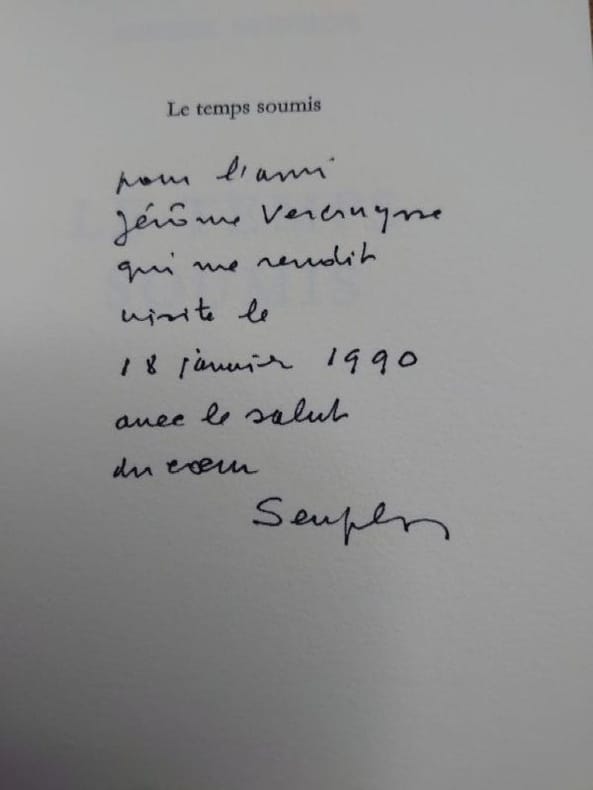 Le temps soumis
pour l'ami
Jérôme Vercruysse
qui me rendit
visite le
18 janvier 1990
avec le salut
du cœur